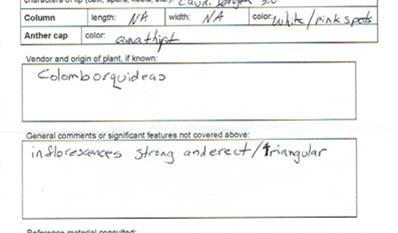 Column length: NA width: NA color: white/pink spots
Anther cap color: amathist
Vendor and origin of plant, if known:
Colomborquideas
General comments or significant features not covered above:
inflorescences strong and erect/triangular
Reference material consulted: